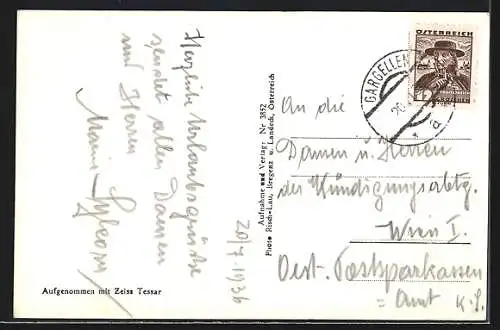 Herzliche Urlaubsgrüsse
sendet allen Damen
und Herren
Maria
20/7. 1936
Aufgenommen mit Zeiss Tessar
Aufnahme und Verlag: Nr 3852
Photo Risch-Lau, Bregenz u. Landeck, Österreich
ÖSTERREICH
GARGELLEN
20.
An die
Damen u. Herren
der Kündigungsabtg.
Wien I.
Öst. Postsparkassen
= Amt